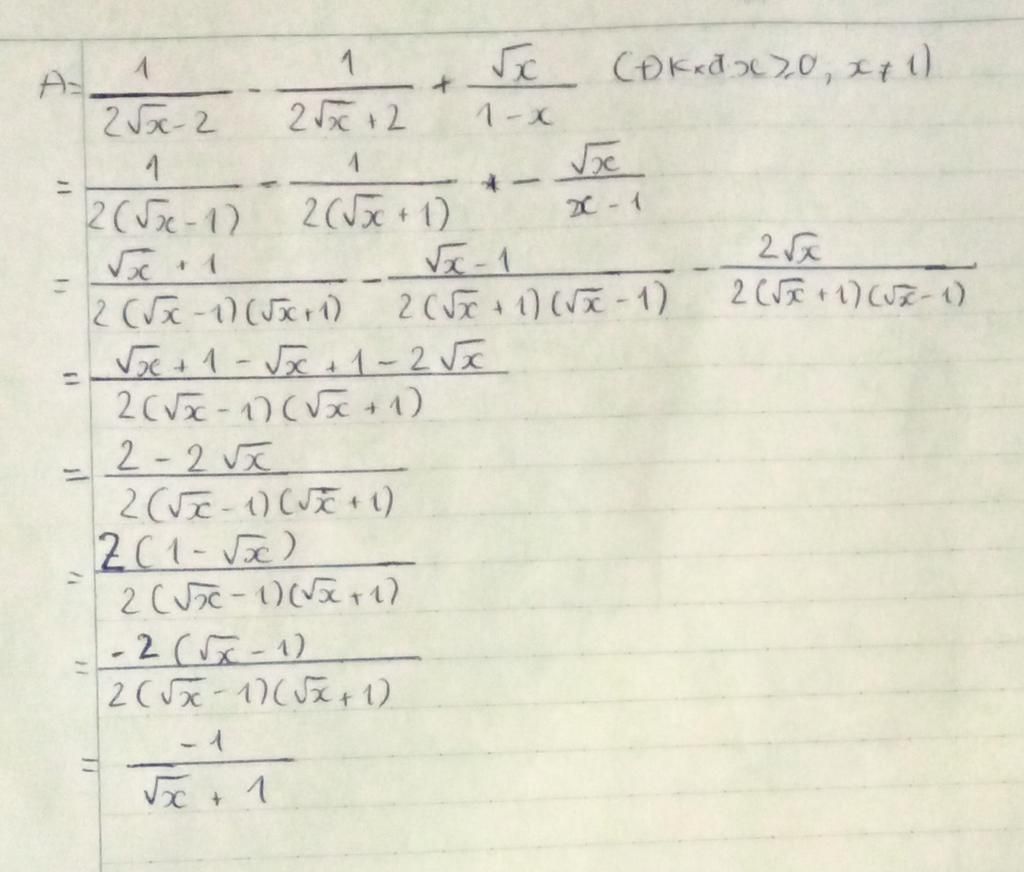 A = 1/(2√x - 2) - 1/(2√x + 2) + √x/(1 - x) (ĐKxđ x ≥ 0, x ≠ 1)
= 1/(2(√x - 1)) - 1/(2(√x + 1)) - √x/(x - 1)
= (√x + 1)/(2(√x - 1)(√x + 1)) - (√x - 1)/(2(√x + 1)(√x - 1)) - 2√x/(2(√x + 1)(√x - 1))
= (√x + 1 - √x + 1 - 2√x)/(2(√x - 1)(√x + 1))
= (2 - 2√x)/(2(√x - 1)(√x + 1))
= 2(1 - √x)/(2(√x - 1)(√x + 1))
= -2(√x - 1)/(2(√x - 1)(√x + 1))
= -1/(√x + 1)